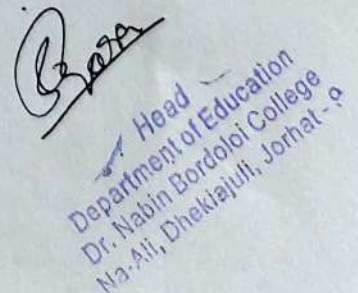 Head
Department of Education
Dr. Nabin Bordoloi College
Na-Ali, Dhekiajuli, Jorhat - 9